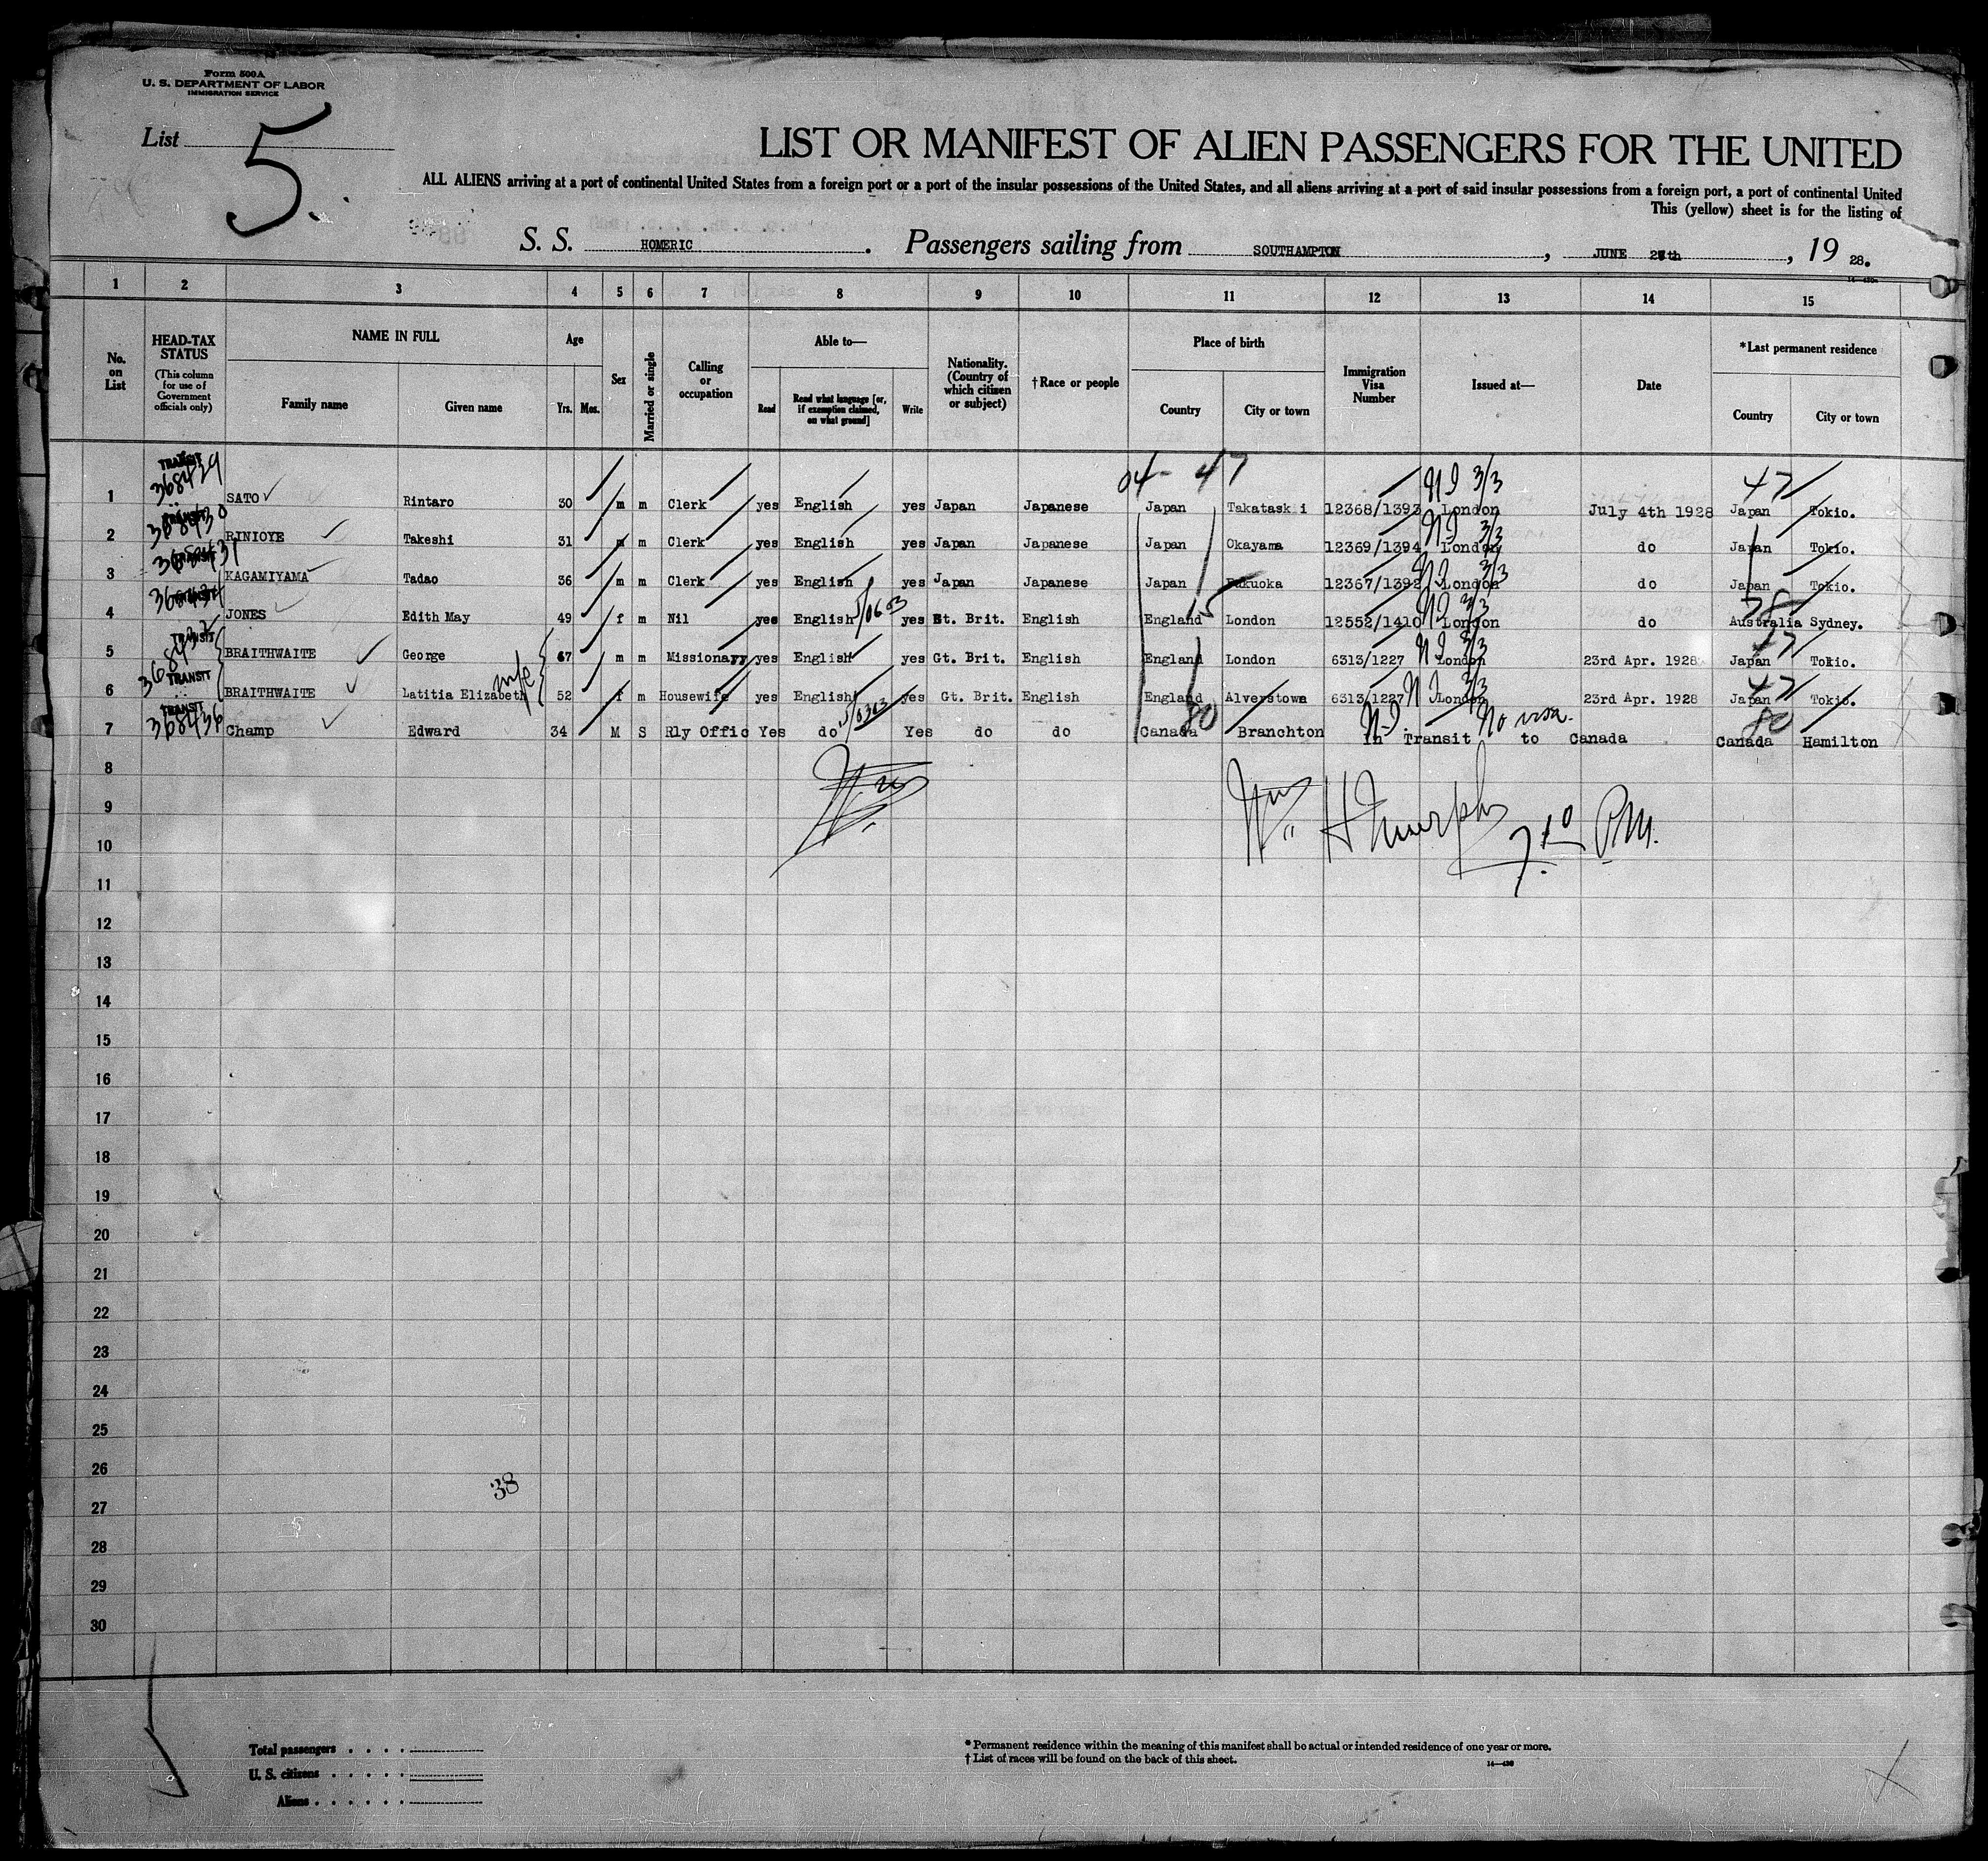 Form 500A
U. S. DEPARTMENT OF LABOR
IMMIGRATION SERVICE
List 5.
LIST OR MANIFEST OF ALIEN PASSENGERS FOR THE UNITED
ALL ALIENS arriving at a port of continental United States from a foreign port or a port of the insular possessions of the United States, and all aliens arriving at a port of said insular possessions from a foreign port, a port of continental United
This (yellow) sheet is for the listing of
S. S. HOMERIC. Passengers sailing from SOUTHAMPTON, JUNE 27th, 19 28.
1 2 3 4 5 6 7 8 9 10 11 12 13 14 15
No. on List
HEAD-TAX STATUS
(This column for use of Government officials only)
NAME IN FULL
Family name Given name
Age
Yrs. Mos.
Sex
Married or single
Calling or occupation
Able to—
Read Read what language [or, if exemption claimed, on what ground] Write
Nationality. (Country of which citizen or subject)
†Race or people
Place of birth
Country City or town
Immigration Visa Number
Issued at—
Date
*Last permanent residence
Country City or town
04- 47
1 TRANSIT 368429 SATO Rintaro 30 m m Clerk yes English yes Japan Japanese Japan Takatask i 12368/1393 NI 3/3 London July 4th 1928 47 Japan Tokio.
2 TRANSIT 368430 RINIOYE Takeshi 31 m m Clerk yes English yes Japan Japanese Japan Okayama 12369/1394 NI 3/3 London do Japan Tokio.
3 TRANSIT 368431 KAGAMIYAMA Tadao 36 m m Clerk yes English yes Japan Japanese Japan Fukuoka 12367/1392 NI 3/3 London do Japan Tokio.
4 JONES Edith May 49 f m Nil yes English yes Gt. Brit. English England 15 London 12552/1410 NI 3/3 London do Australia Sydney.
5 TRANSIT BRAITHWAITE George 67 m m Missionary yes English yes Gt. Brit. English England London 6313/1227 NI 3/3 London 23rd Apr. 1928 47 Japan Tokio.
6 TRANSIT BRAITHWAITE Latitia Elizabeth wife 52 f m Housewife yes English yes Gt. Brit. English England Alverstowe 6313/1227 NI 3/3 London 23rd Apr. 1928 47 Japan Tokio.
7 TRANSIT 368436 Champ Edward 34 M S Rly Offic Yes do Yes do do Canada 80 Branchton NI No visa. In Transit to Canada 80 Canada Hamilton
8
9 Wm H Murphy
10 P.M.
11
12
13
14
15
16
17
18
19
20
21
22
23
24
25
26
38
27
28
29
30
Total passengers
U. S. citizens
Aliens
* Permanent residence within the meaning of this manifest shall be actual or intended residence of one year or more.
† List of races will be found on the back of this sheet.
14—430